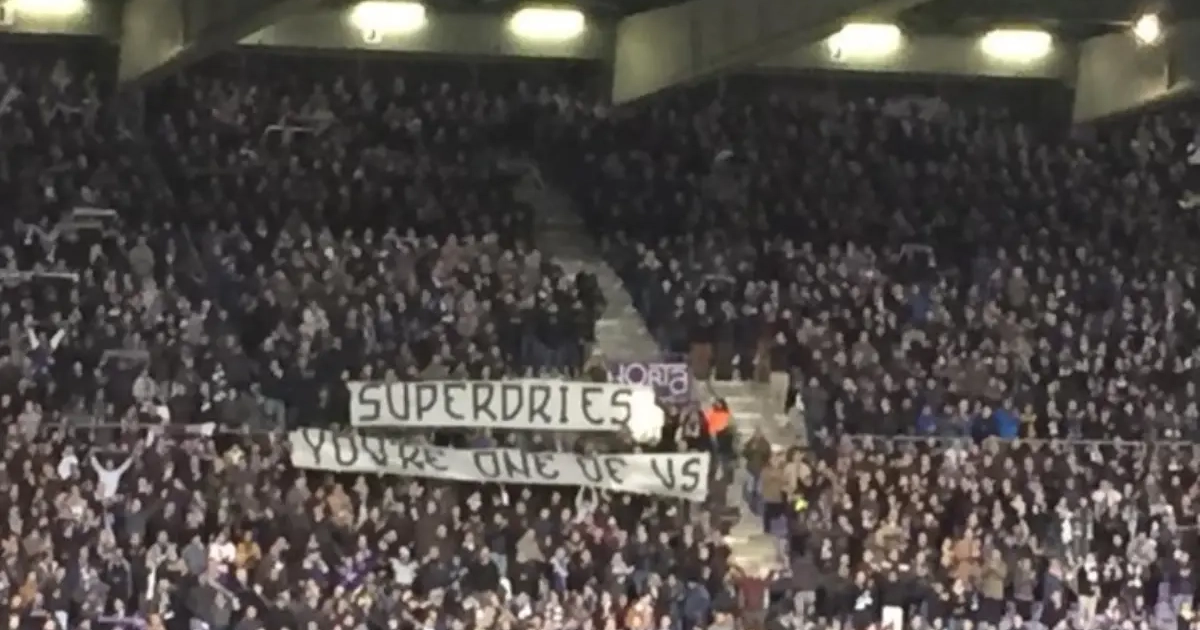 HORTA
SUPERDRIES
YOU'RE ONE OF US